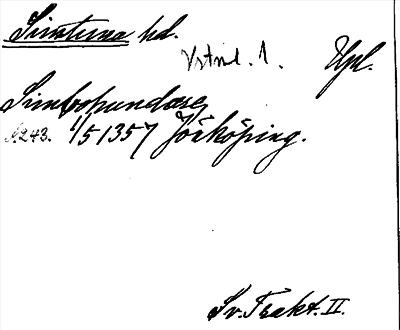 Simtuna hd.
Vstml. 1. Upl.
Simbohundare
A243. 1/5 1357 Jönköping.
Sv. Trakt. II.